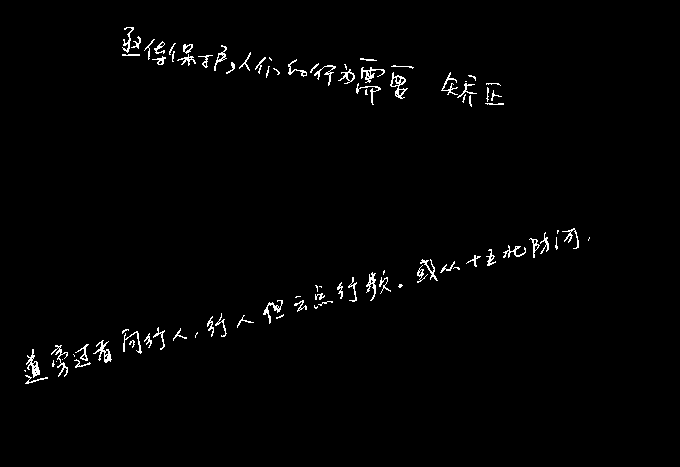 遗传保护，人们的行为需要 矫正
道旁过者问行人，行人但云点行频。或从十五北防河，